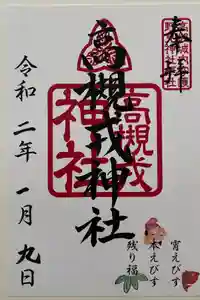 奉拝
高槻戎
高槻戎神社
令和二年一月九日
宵えびす
本えびす
残り福